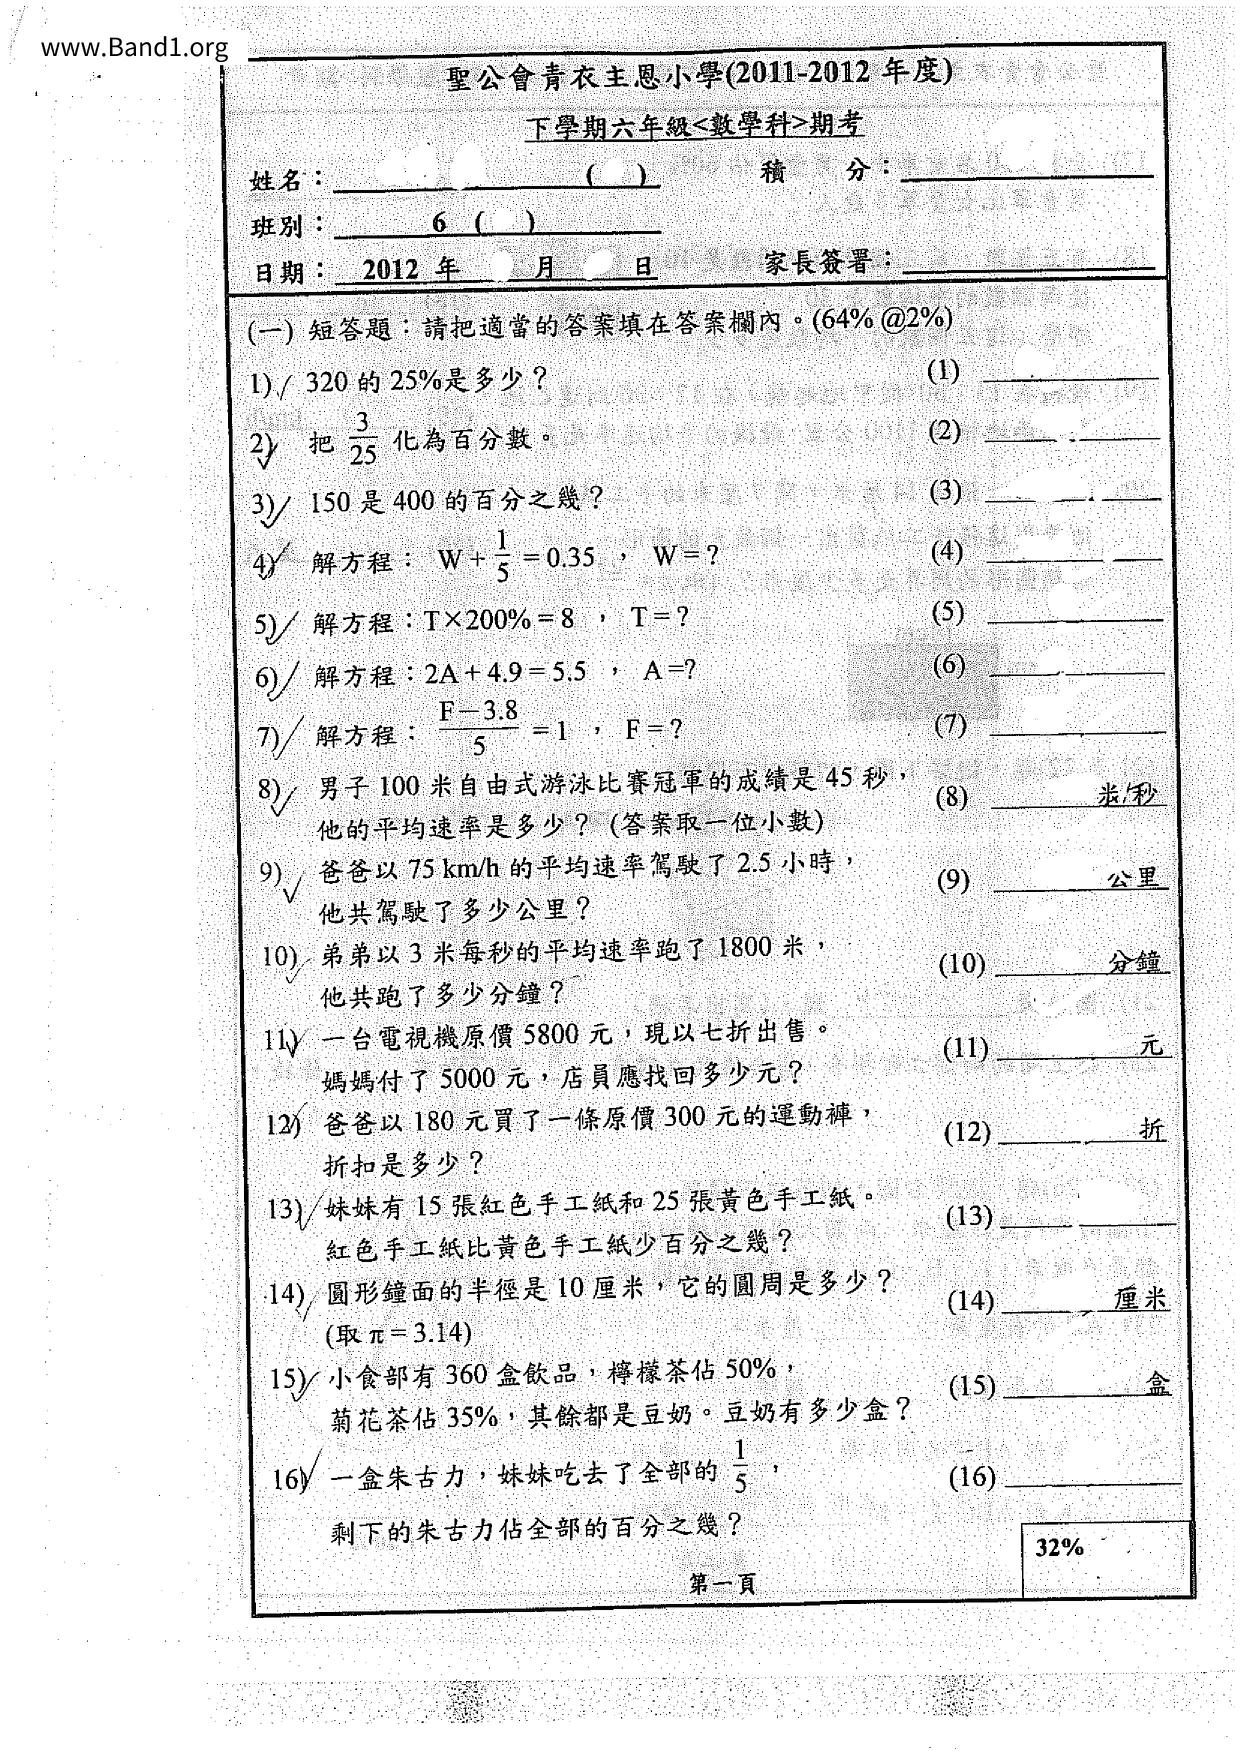 www.Band1.org
聖公會青衣主恩小學(2011-2012 年度)
下學期六年級<數學科>期考
姓名： ( ) 積 分：
班別： 6 ( )
日期： 2012 年 月 日 家長簽署：
(一) 短答題：請把適當的答案填在答案欄內。(64% @2%)
1) 320 的 25%是多少？ (1)
2) 把 3/25 化為百分數。 (2)
3) 150 是 400 的百分之幾？ (3)
4) 解方程： W + 1/5 = 0.35 ， W = ? (4)
5) 解方程：T×200% = 8 ， T = ? (5)
6) 解方程：2A + 4.9 = 5.5 ， A =? (6)
7) 解方程： F－3.8/5 = 1 ， F = ? (7)
8) 男子 100 米自由式游泳比賽冠軍的成績是 45 秒， (8) 米/秒
他的平均速率是多少？ (答案取一位小數)
9) 爸爸以 75 km/h 的平均速率駕駛了 2.5 小時， (9) 公里
他共駕駛了多少公里？
10) 弟弟以 3 米每秒的平均速率跑了 1800 米， (10) 分鐘
他共跑了多少分鐘？
11) 一台電視機原價 5800 元，現以七折出售。 (11) 元
媽媽付了 5000 元，店員應找回多少元？
12) 爸爸以 180 元買了一條原價 300 元的運動褲， (12) 折
折扣是多少？
13) 妹妹有 15 張紅色手工紙和 25 張黃色手工紙。 (13)
紅色手工紙比黃色手工紙少百分之幾？
14) 圓形鐘面的半徑是 10 厘米，它的圓周是多少？ (14) 厘米
(取 π = 3.14)
15) 小食部有 360 盒飲品，檸檬茶佔 50%， (15) 盒
菊花茶佔 35%，其餘都是豆奶。豆奶有多少盒？
16) 一盒朱古力，妹妹吃去了全部的 1/5 ， (16)
剩下的朱古力佔全部的百分之幾？
32%
第一頁